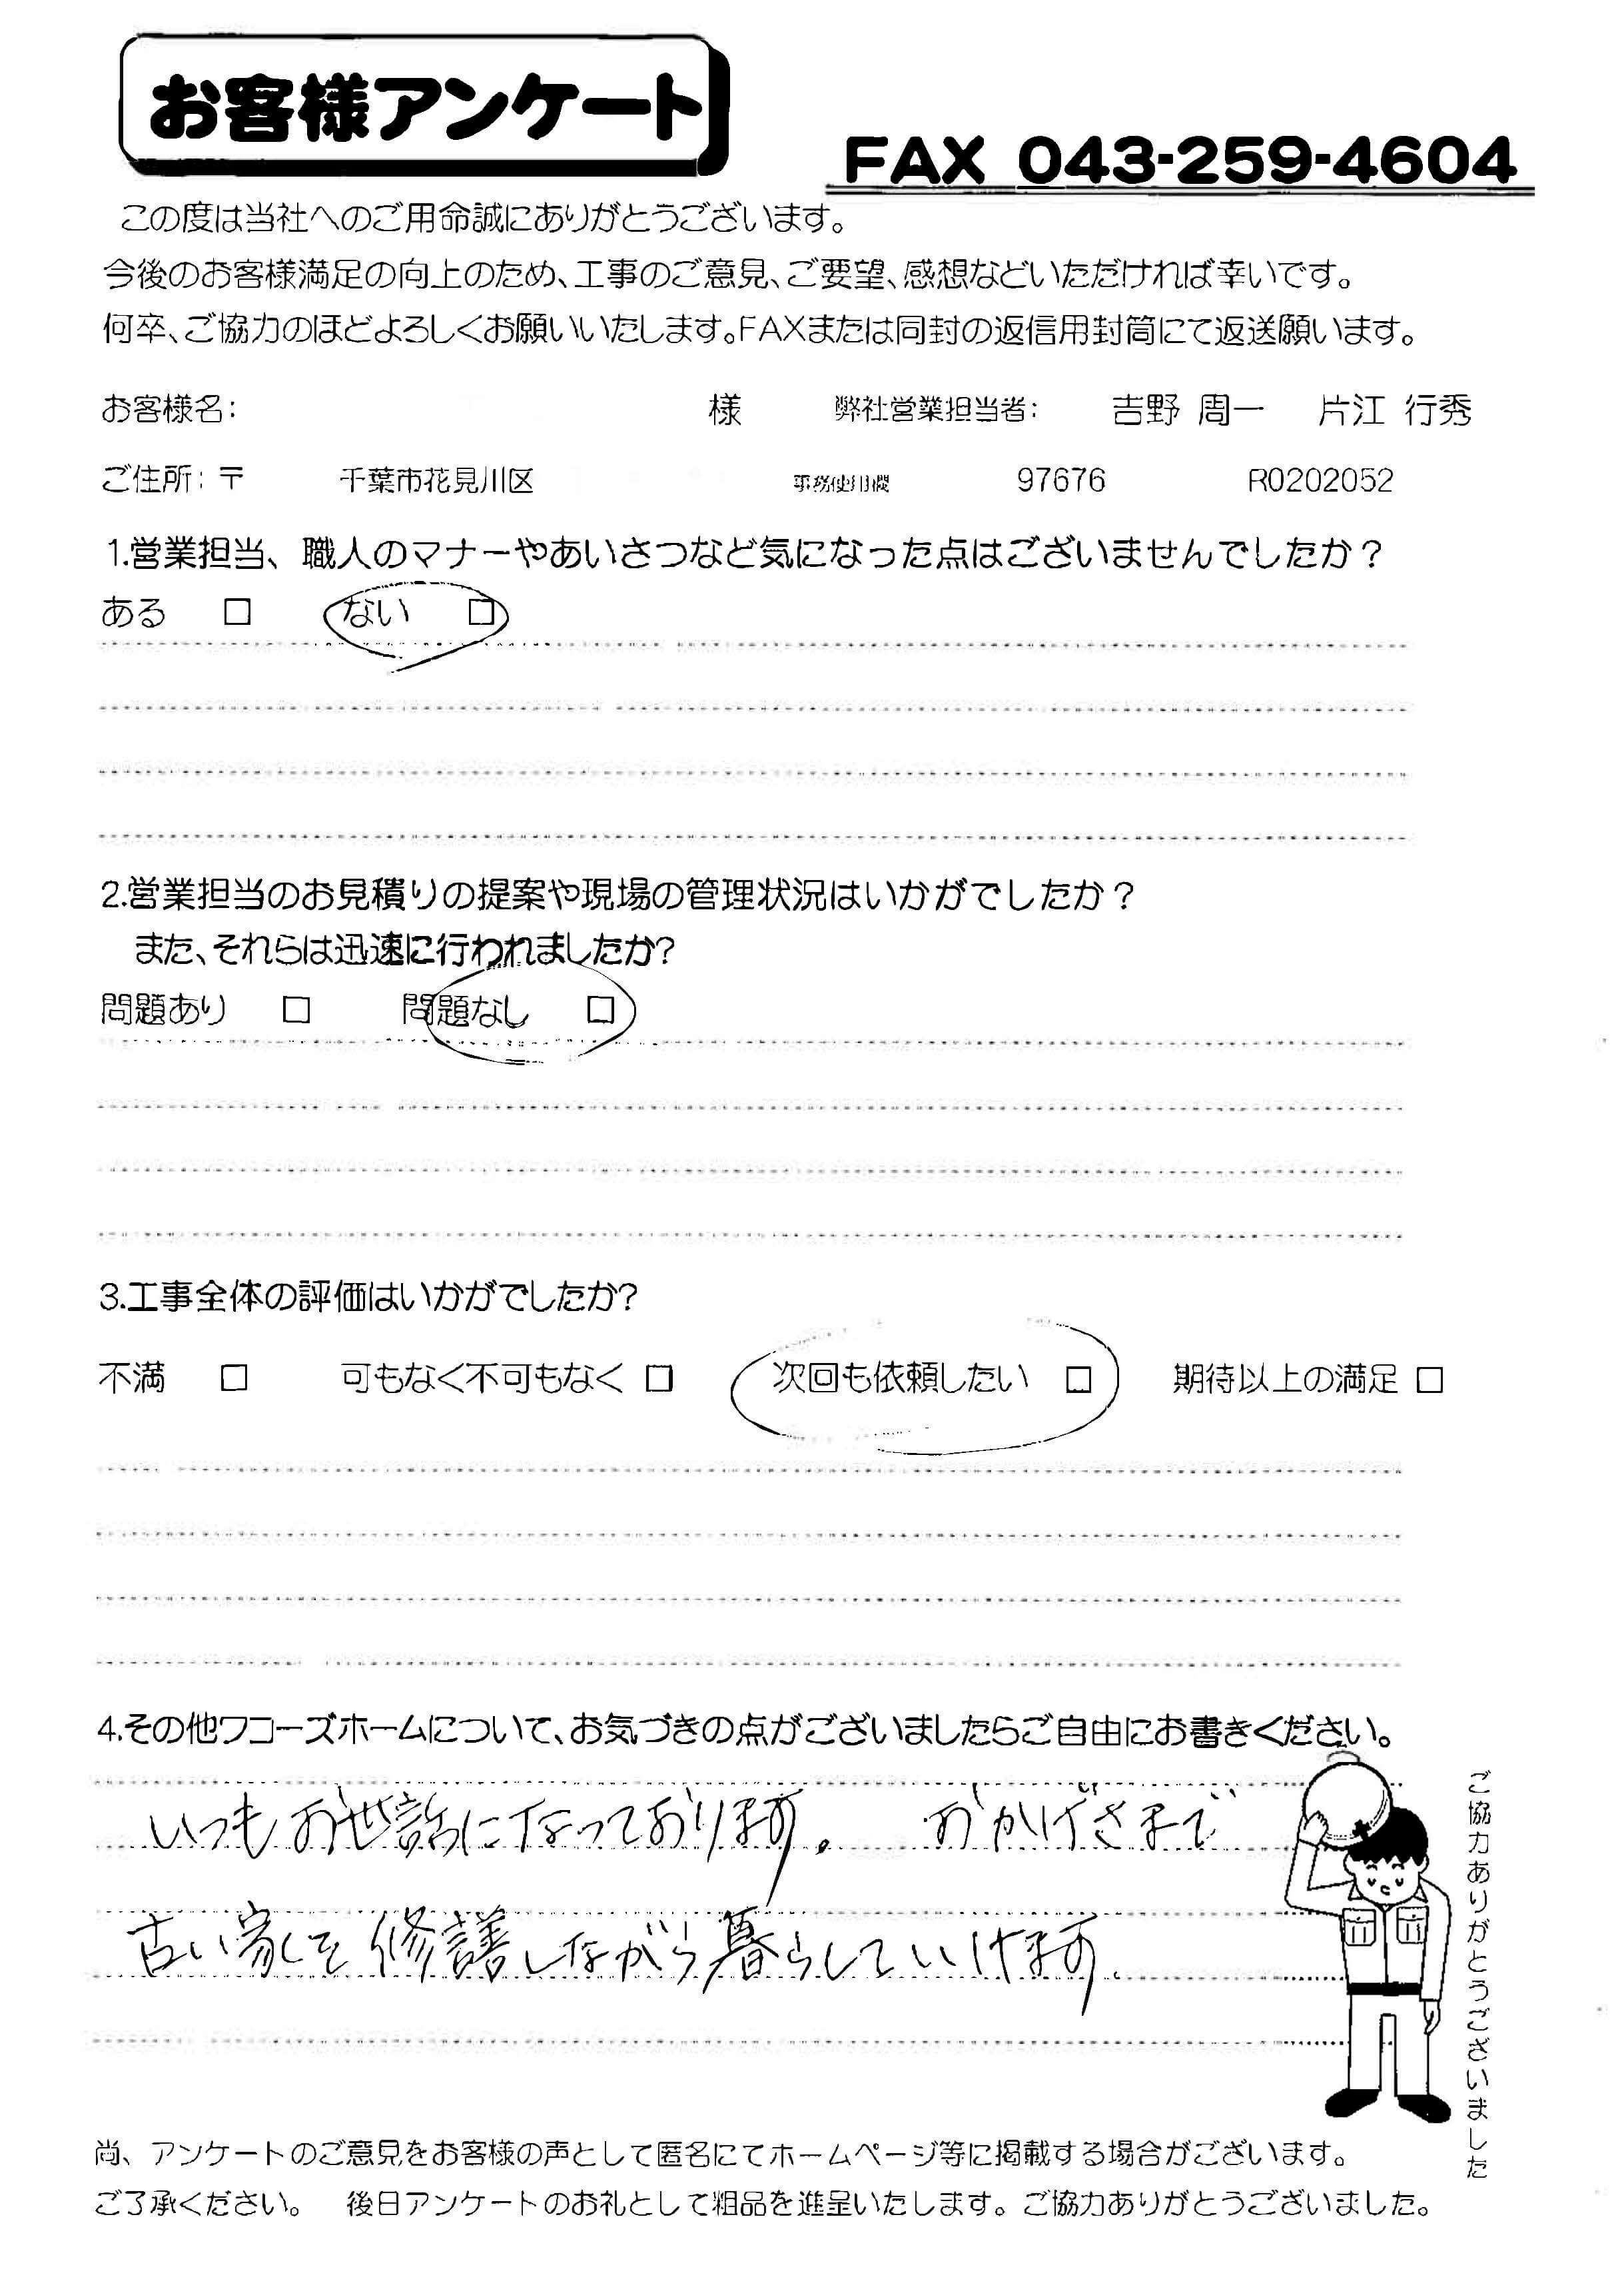 お客様アンケート
FAX 043-259-4604
この度は当社へのご用命誠にありがとうございます。
今後のお客様満足の向上のため、工事のご意見、ご要望、感想などいただければ幸いです。
何卒、ご協力のほどよろしくお願いいたします。FAXまたは同封の返信用封筒にて返送願います。
お客様名： 様 弊社営業担当者： 吉野 周一 片江 行秀
ご住所：〒 千葉市花見川区 事務使用欄 97676 R0202052
1.営業担当、職人のマナーやあいさつなど気になった点はございませんでしたか？
ある □ ない □
2.営業担当のお見積りの提案や現場の管理状況はいかがでしたか？
また、それらは迅速に行われましたか?
問題あり □ 問題なし □
3.工事全体の評価はいかがでしたか?
不満 □ 可もなく不可もなく □ 次回も依頼したい □ 期待以上の満足 □
4.その他ワコーズホームについて、お気づきの点がございましたらご自由にお書きください。
いつもお世話になっております。 おかげさまで
古い家を修繕しながら暮らしていけます。
ご協力ありがとうございました
尚、アンケートのご意見をお客様の声として匿名にてホームページ等に掲載する場合がございます。
ご了承ください。 後日アンケートのお礼として粗品を進呈いたします。ご協力ありがとうございました。